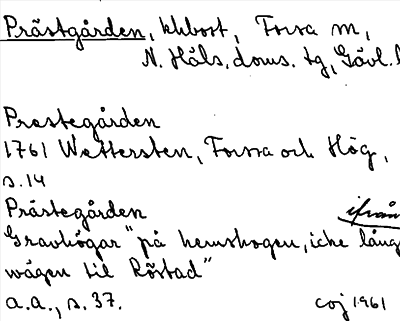 Prästgården, khbost, Forsa m,
N. Häls. doms. tg, Gävl. l
Prestegården
1761 Wettersten, Forssa och Hög,
s. 14
Prästegården ifrån
Gravhögar "på hemshogen, icke lång
wägen til Röstad"
a.a., s. 37. coj 1961